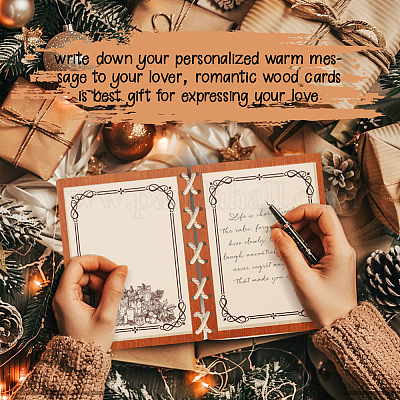 write down your personalized warm mes-
sage to your lover, romantic wood cards
is best gift for expressing your love.
Life is short,
the rules, forgive
kiss slowly,
laugh uncontrollably
never regret any
that made you